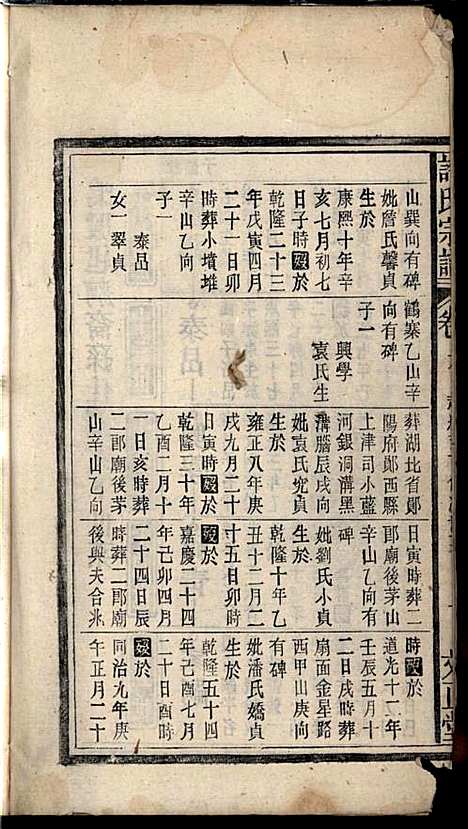 氏宗譜
卷
堂
山巽向有碑
妣詹氏馨貞
生於
康熙十年辛
亥七月初七
日子時歿於
乾隆二十三
年戊寅四月
二十一日卯
時葬小墳堆
辛山乙向
子一
泰品
女一翠貞
鶴寨乙山辛
向有碑
子一
興學
袁氏生
葬湖北省鄖
陽府鄖西縣
上津司小藍
河銀洞溝黑
溝腦辰戌向
妣袁氏貞
生於
雍正八年庚
戌九月二十
日寅時歿於
乾隆三十年
乙酉二月十
一日亥時葬
二郎廟後茅
山辛山乙向
日寅時葬二
郎廟後茅山
辛山乙向有
碑
妣劉氏小貞
生於
乾隆十年乙
丑十二月二
十五日卯時
歿於
嘉慶二十四
年己卯四月
二十四日辰
時葬二郎廟
後與夫合兆
時歿於
道光十二年
壬辰五月十
二日戌時葬
扇面金星路
西甲山庚向
有碑
妣潘氏嬌貞
生於
乾隆五十四
年己酉七月
二十日酉時
歿於
同治九年庚
午正月二十